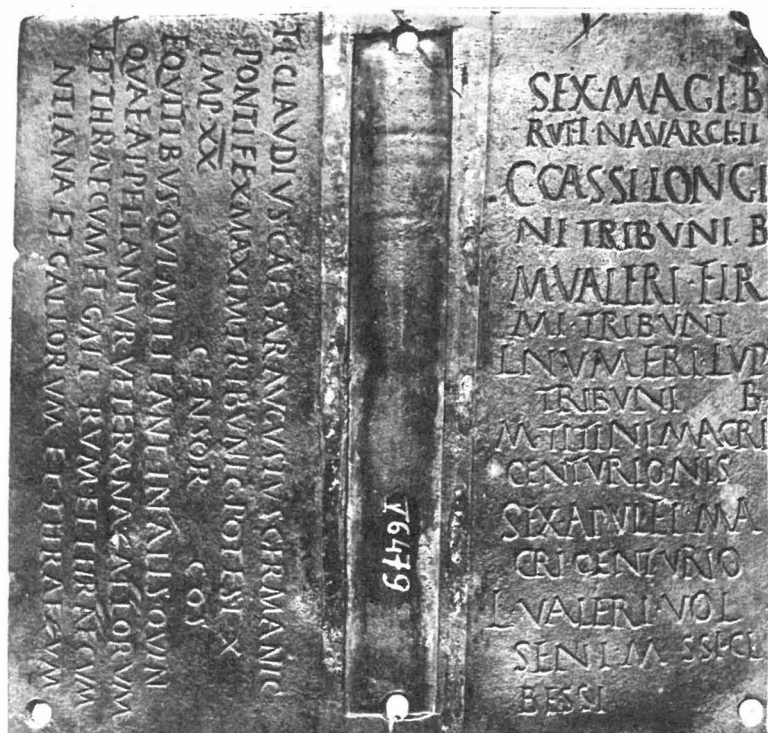 TI CLAVDIVS CAESAR AVGVSTVS GERMANIC
PONTIFEX MAXIM TRIBVNIC POTEST X
IMP XX CENSOR COS
EQVITIBVS QVI MILITANT IN ALIS QVIN
QVAE APPELLANTVR VETERANA GALLORVM
ET THRAECVM ET GALL RVM ET THRAECVM
NTIANA ET GALLORVM ET THRAECVM
Y6479
SEX·MAGI·B
RVFI NAVARCHI
C·CASSI LONGI
NI TRIBVNI B
M·VALERI·FIR
MI·TRIBVNI
L·NVMERI·LVP
TRIBVNI B
M·TITINI MACRI
CENTVRIONIS
SEX·APVLEI·MA
CRI CENTVRIO
L·VALERI·VOL
SENI·M SSICI
BESSI